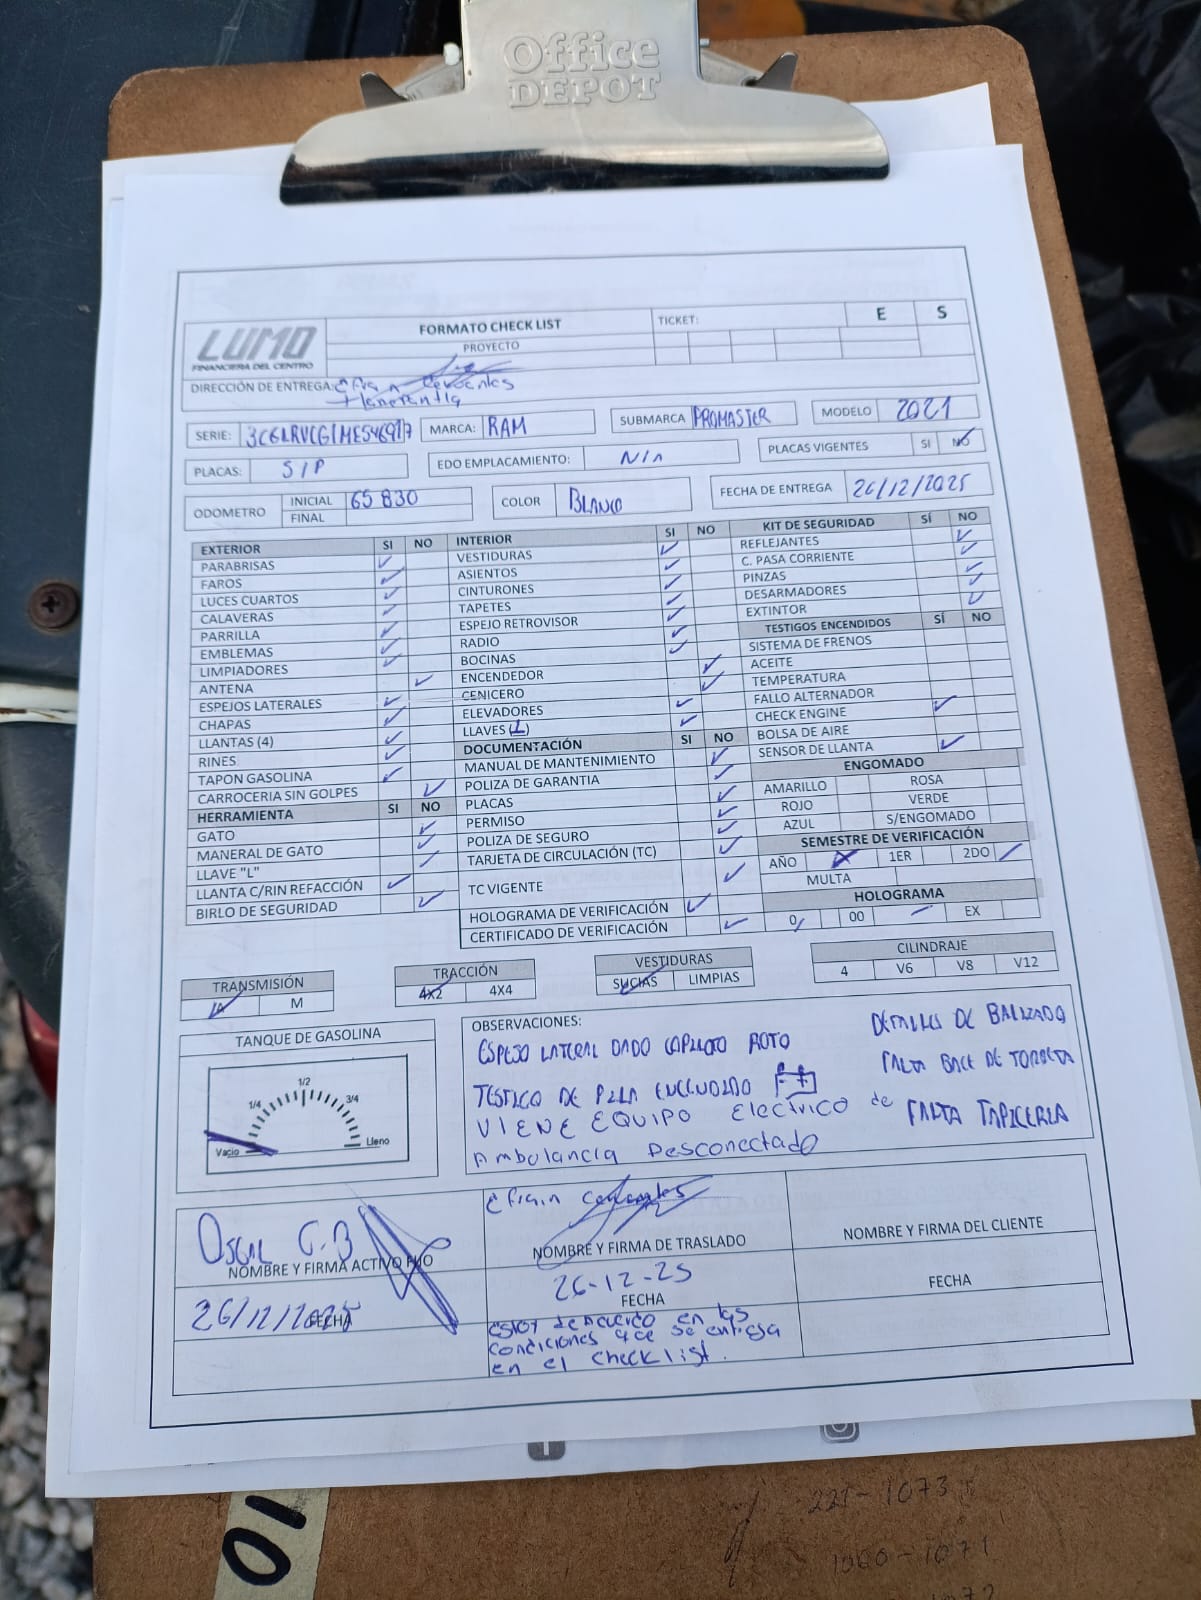 Office
DEPOT
LUMO
FINANCIERA DEL CENTRO
FORMATO CHECK LIST
PROYECTO
TICKET:
E
S
DIRECCIÓN DE ENTREGA: Efrain Cervantes
Tlanepantla
SERIE:
MARCA: RAM
SUBMARCA PROMASTER
MODELO 2021
PLACAS: S/P
EDO EMPLACAMIENTO: N/A
PLACAS VIGENTES SI NO
ODOMETRO INICIAL 65830
FINAL
COLOR BLANCO
FECHA DE ENTREGA 26/12/2025
EXTERIOR SI NO
PARABRISAS
FAROS
LUCES CUARTOS
CALAVERAS
PARRILLA
EMBLEMAS
LIMPIADORES
ANTENA
ESPEJOS LATERALES
CHAPAS
LLANTAS (4)
RINES
TAPON GASOLINA
CARROCERIA SIN GOLPES
HERRAMIENTA SI NO
GATO
MANERAL DE GATO
LLAVE "L"
LLANTA C/RIN REFACCIÓN
BIRLO DE SEGURIDAD
INTERIOR SI NO
VESTIDURAS
ASIENTOS
CINTURONES
TAPETES
ESPEJO RETROVISOR
RADIO
BOCINAS
ENCENDEDOR
CENICERO
ELEVADORES
LLAVES (1)
DOCUMENTACIÓN SI NO
MANUAL DE MANTENIMIENTO
POLIZA DE GARANTIA
PLACAS
PERMISO
POLIZA DE SEGURO
TARJETA DE CIRCULACIÓN (TC)
TC VIGENTE
HOLOGRAMA DE VERIFICACIÓN
CERTIFICADO DE VERIFICACIÓN
KIT DE SEGURIDAD SÍ NO
REFLEJANTES
C. PASA CORRIENTE
PINZAS
DESARMADORES
EXTINTOR
TESTIGOS ENCENDIDOS SÍ NO
SISTEMA DE FRENOS
ACEITE
TEMPERATURA
FALLO ALTERNADOR
CHECK ENGINE
BOLSA DE AIRE
SENSOR DE LLANTA
ENGOMADO
AMARILLO ROSA
ROJO VERDE
AZUL S/ENGOMADO
SEMESTRE DE VERIFICACIÓN
AÑO 1ER 2DO
MULTA
HOLOGRAMA
0 00 EX
TRANSMISIÓN
A M
TRACCIÓN
4X2 4X4
VESTIDURAS
SUCIAS LIMPIAS
CILINDRAJE
4 V6 V8 V12
TANQUE DE GASOLINA
1/4 1/2 3/4
Vacio Lleno
OBSERVACIONES:
ESPEJO LATERAL DADO COPILOTO ROTO
TESTIGO DE PILA ENCENDIDO
VIENE EQUIPO Electrico de
Ambulancia Desconectado
DETALLES DE BALIZADO
FALTA BASE DE TORRETA
FALTA TAPICERIA
Oscar C.B
NOMBRE Y FIRMA ACTIVO FIJO
26/12/2025
FECHA
Efrain Cervantes
NOMBRE Y FIRMA DE TRASLADO
26-12-25
FECHA
Estoy de acuerdo en las
condiciones que se entrega
en el checklist.
NOMBRE Y FIRMA DEL CLIENTE
FECHA
01
221-1073
1060-1071